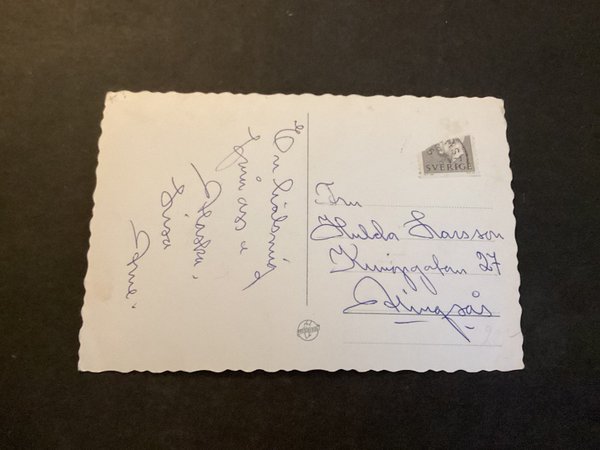 En hälsning
från oss
Arne.
SVERIGE
Fru
Hulda Larsson
Kungsgatan 27
Alingsås